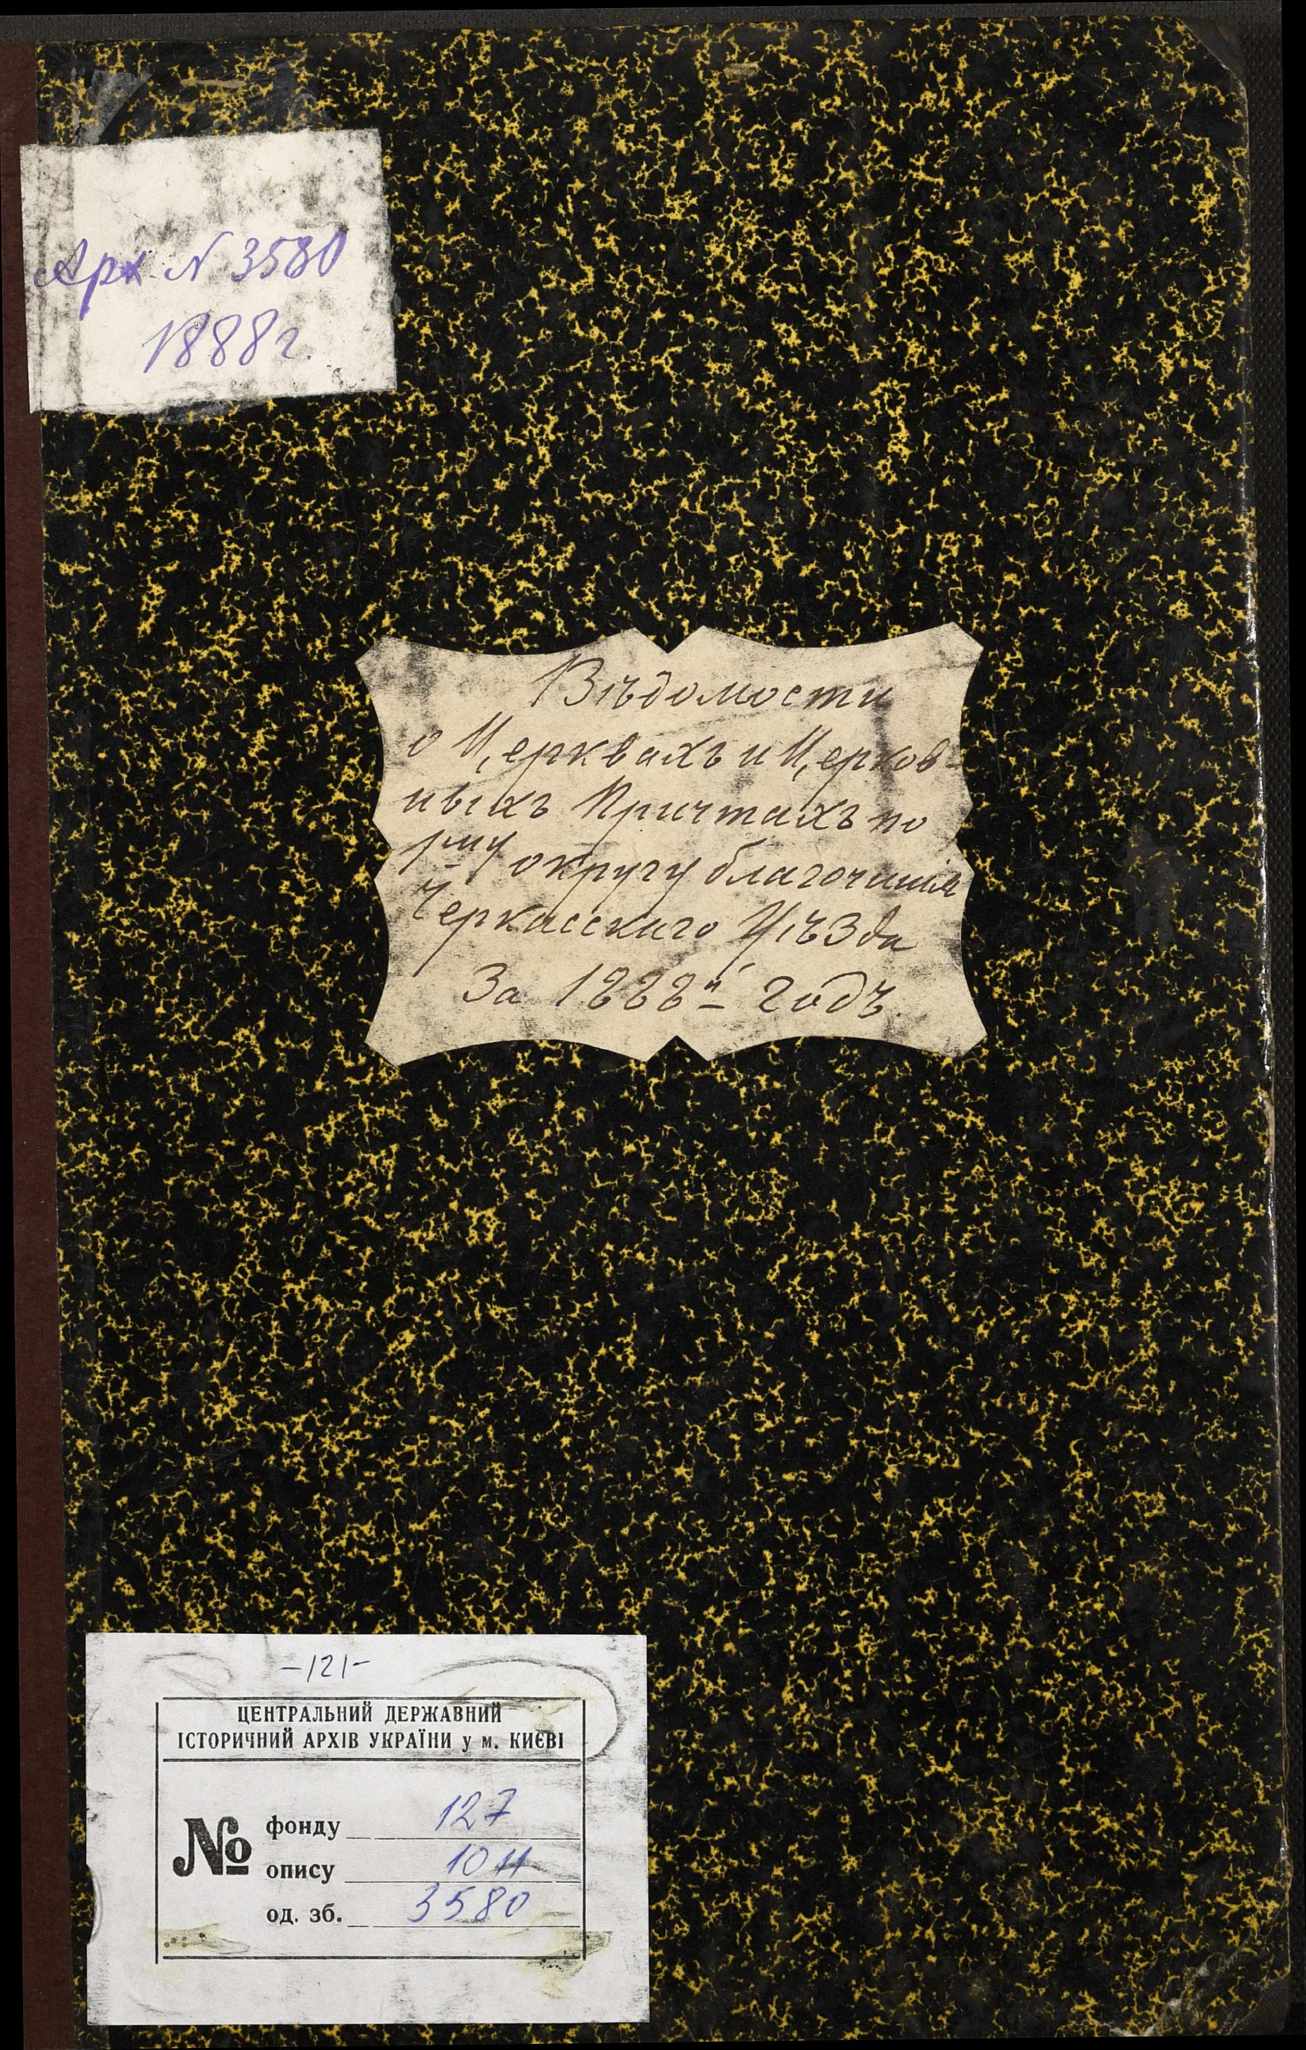 Арх. N 3580
1888 г.
Вѣдомости
о Церквахъ и Церков-
ныхъ Причтахъ по
1му округу благочинія
Черкасскаго Уѣзда
За 1888й годъ.
-121-
ЦЕНТРАЛЬНИЙ ДЕРЖАВНИЙ
ІСТОРИЧНИЙ АРХІВ УКРАЇНИ у м. КИЄВІ
№
фонду 127
опису
од. зб. 3580